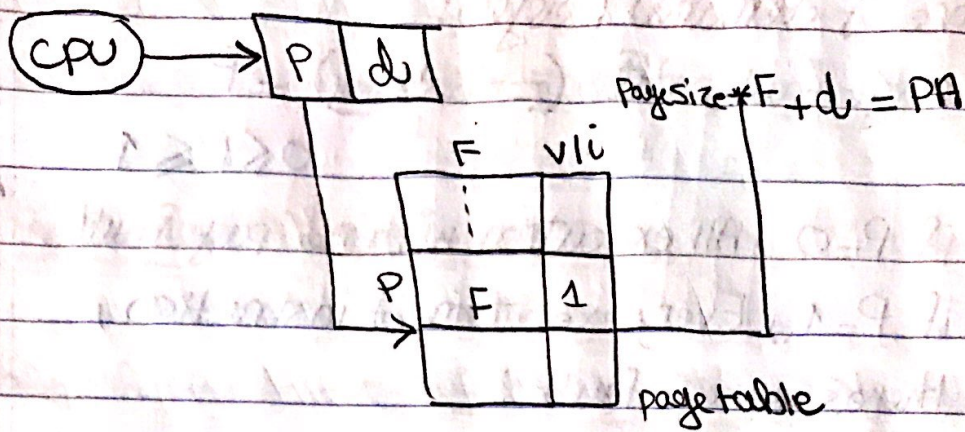 CPU P d
Pagesize*F+d = PA
F v/i
P F 1
page table